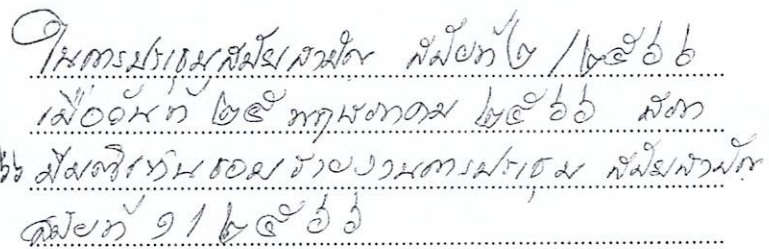 ในการประชุมสมัยสามัญ สมัยที่ ๒ /๒๕๖๖
เมื่อวันที่ ๒๕ พฤษภาคม ๒๕๖๖ สภา
มีมติเห็นชอบรายงานการประชุม สมัยสามัญ
สมัยที่ ๑/๒๕๖๖